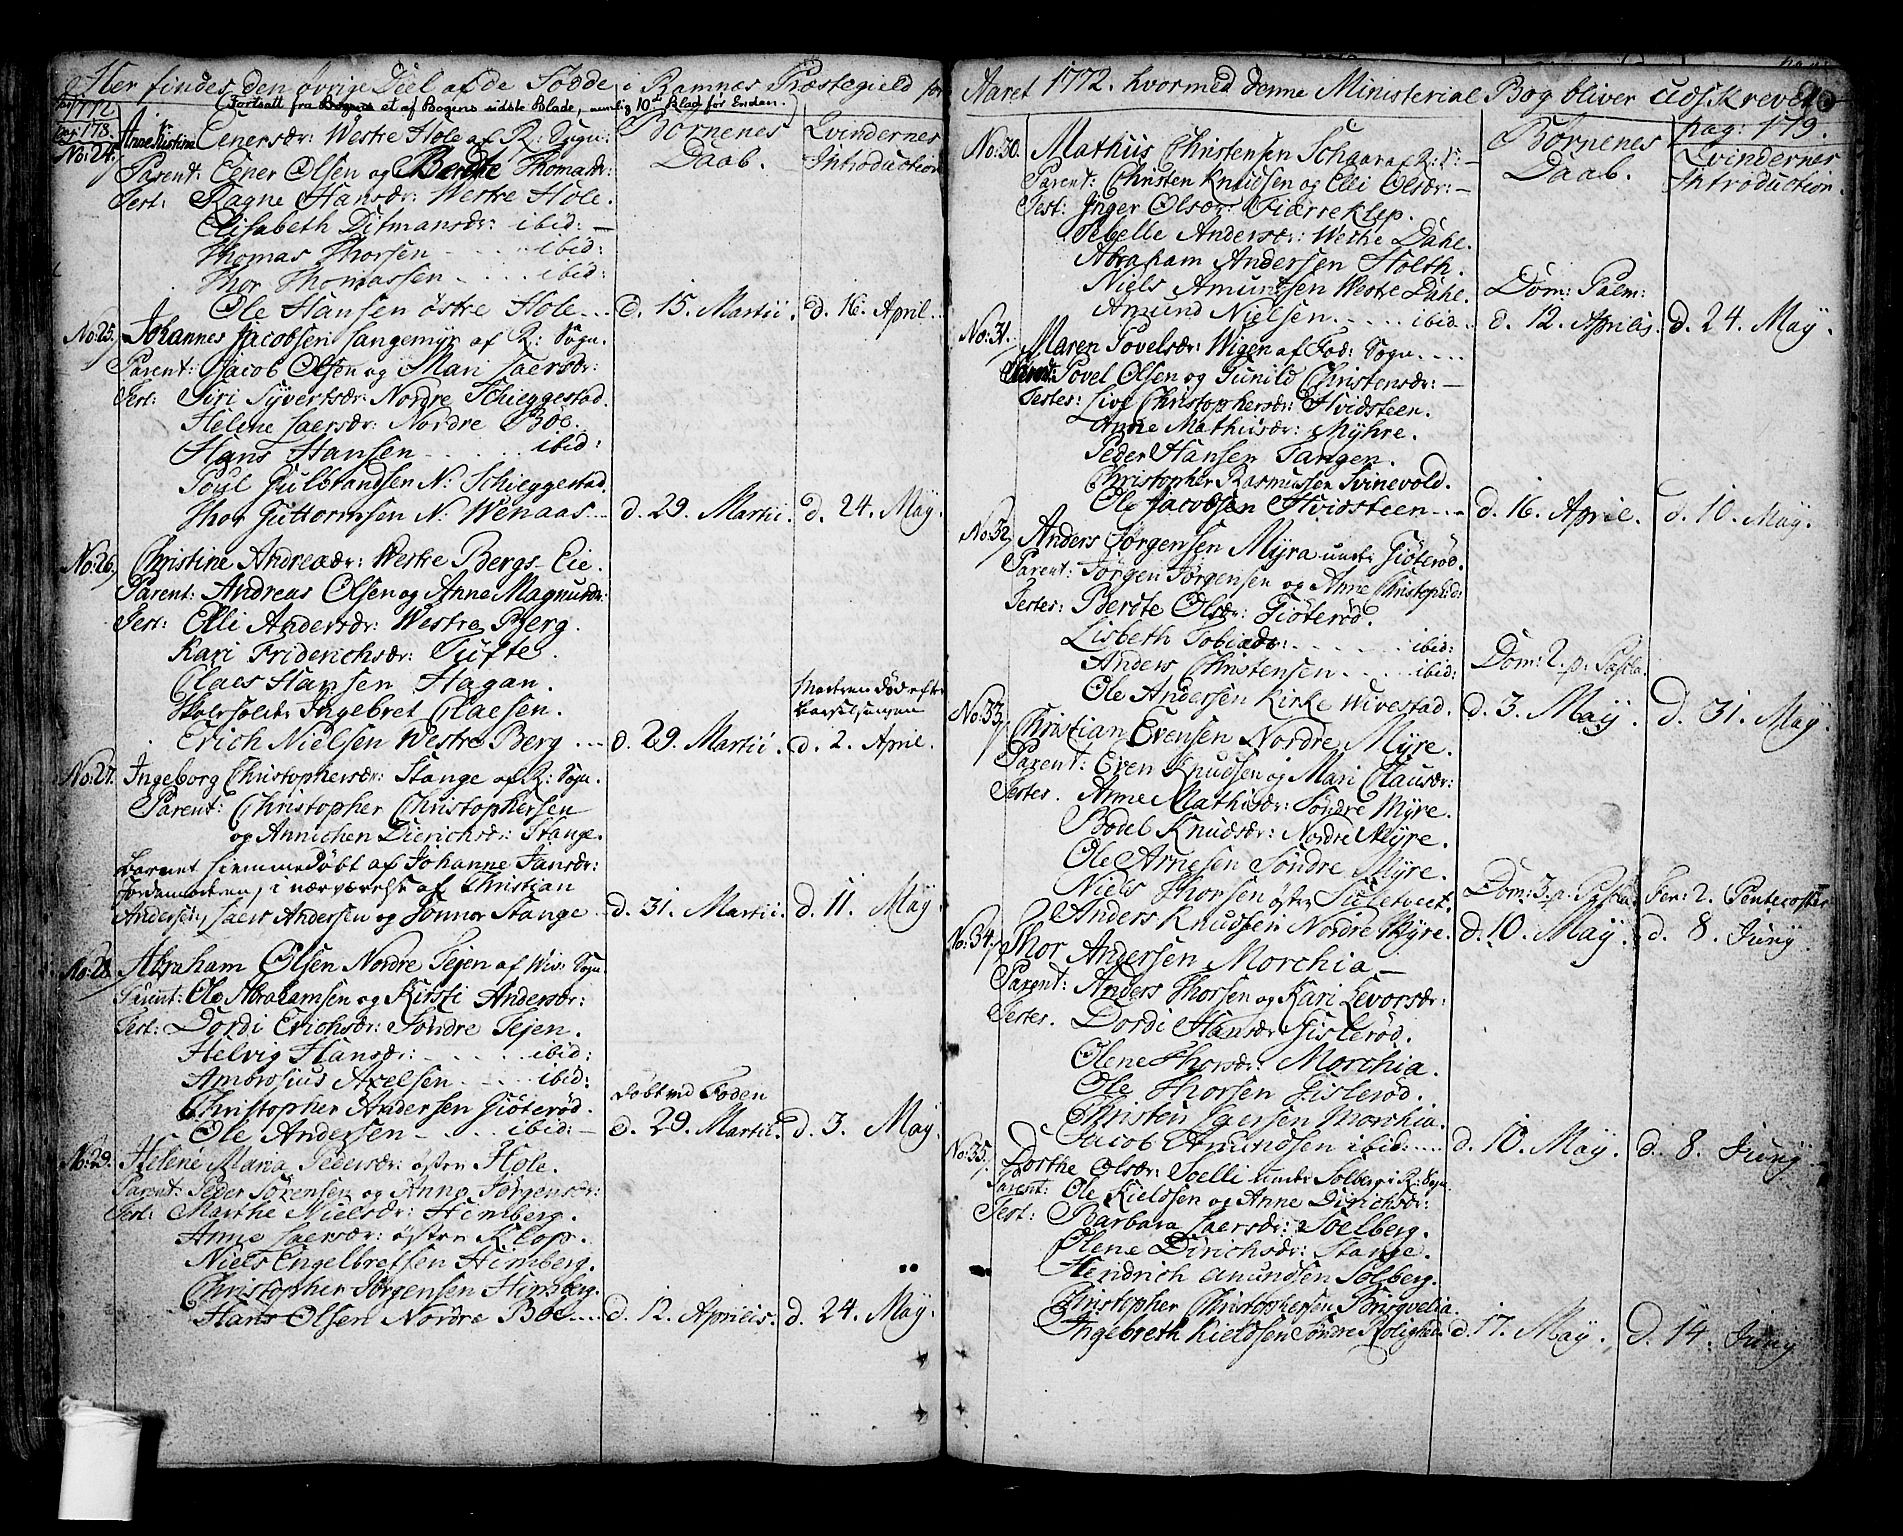 Her findes den øvrige Deel af de Fødde i Ramnæs Præstegield for
(Fortsatt fra et af Bogens sidste Blade, nemlig 10de Blad før Enden.)
1772
pag: 178.
Børnenes Daab.
Qvindernes Introduction
No: 24. Anne Kirstine Eenersær: Westre Hole af R: Sogn.
Parent: Eener Olsen og Berthe Thomædr:
Test: Ragne Hansær: Westre Hole.
Elisabeth Ditmansær: ibid: —
Thomas Thorsen - - - ibid:
Thor Thomassen - - - ibid:
Ole Hansen østre Hole... d. 15. Martii. d. 16. April.
No: 25. Johannes Jacobsen Langemyr af R: Sogn.
Parent: Jacob Olsen og Mari Laersær:
Test: Siri Syvertsær: Nordre Schieggestad.
Helene Laersær: Nordre Böe.
Hans Hansen - - - ibid:
Poul Gulbrandsen N: Schieggestad.
Thor Guttormsen N: Wenaas... d. 29. Martii. d. 24. May.
No: 26. Christine Andreædr: Westre Bergs-Eie.
Parent: Andreas Olsen og Anne Magnusdr:
Test: Elli Andersær: Westre Berg.
Kari Friderichsær: Tufte.
Claes Hansen Hagan.
Ingebret Claesen.
Moderen død efter Barselsengen
Erich Nielsen Westre Berg... d. 29. Martii. d. 2. April.
No: 27. Ingeborg Christophersær: Stange af R: Sogn.
Parent: Christopher Christophersen
og Annichen Dierichsær: Stange.
Barnet hiemmedøbt af Johanne Jansær:
Jordemoderen, i nærværelse af Christian
Andersen, Laers Andersen og Gonnor Stange... d. 31. Martii. d. 11. May.
No: 28. Abraham Olsen Nordre Fejen af Wiv: Sogn.
Parent: Ole Abrahamsen og Kirsti Andersær:
Test: Dordi Erichsær: Söndre Fejen.
Helvig Hansær: - - - ibid:
Ambrosius Axelsen - - - ibid:
Christopher Andersen Giöteröd.
Døbt ved Foden
Ole Andersen - - - ibid: — d. 29. Martii. d. 3. May.
No: 29. Helene Maria Pedersær: østre Hole.
Parent: Peder Sörensen og Anne Jørgensær:
Test: Marthe Nielsær: Himberg.
Anne Laersær: østre Klop.
Niels Engelbretsen Himberg.
Christopher Jörgensen Himberg.
Hans Olsen Nordre Böe.... d. 12. Aprilis. d. 24. May.
Aaret 1772. hvormed denne Ministerial Bog bliver udskreven
pag: 179.
Børnenes Daab.
Qvindernes Introduction.
No: 30. Mathiis Christensen Schaara af R: S: —
Parent: Christen Knudsen og Elli Olsær: —
Test: Inger Olsær: Fiærreklep.
Pebelle Andersær: Westre Dahl.
Abraham Andersen Holth.
Niels Amundsen Westre Dahl. Dom: Palm:
Amund Nielsen - - - ibid.. d. 12. Aprilis. d. 24. May.
No: 31. Maren Povelsær: Wigen af Fod: Sogn....
Parent: Povel Olsen og Gunild Christensær: —
Testes: Live Christophersær: Hvidsteen.
Anne Mathiisær: Myhre.
Peder Hansen Tangen.
Christopher Rasmussen Svinevold.
Ole Jacobsen Hvidsteen... d. 16. April. d. 10. May.
No: 32. Anders Jørgensen Myra under Giöteröd.
Parent: Jørgen Jørgensen og Anne Christophd:
Testes: Berthe Olsær: Giöteröd.
Lisbeth Tobiædr: - - - ibid:
Anders Christensen - - - ibid: Dom: 2. p. Pascha
Ole Andersen Kirke Wivestad. d. 3. May. d. 31. May.
No: 33. Christian Evensen Nordre Myre.
Parent: Even Knudsen og Mari Clausær:
Testes. Anne Mathisær: Söndre Myre.
Bodel Knudsær: Nordre Myre.
Ole Arnesen Söndre Myre.
Niels Thorsen østre Sletvet. Dom: 3. p. Pascha. Fer: 2. Pentecostes
Anders Knudsen Nordre Myre. d. 10. May. d. 8. Juny.
No: 34. Thor Andersen Morchia —
Parent: Anders Thorsen og Kari Levorsær:
Testes. Dordi Hansær: Gisleröd.
Olene Thorsær: Morchia.
Ole Thorsen Gisleröd.
Christen Morchia.
Jacob Amundsen ibid:.... d. 10. May. d. 8. Juny.
No: 35. Dorthe Olsær: Soelli under Solberg i R: Sogn.
Parent: Ole Kieldsen og Anne Dirichsær:
Test: Barbara Laersær: Soelberg.
Olene Dirichsær: Stange.
Hendrich Amundsen Solberg.
Christopher Christophersen
Ingebreth Kieldsen Søndre Rolighed. d. 17. May. d. 14. Juny